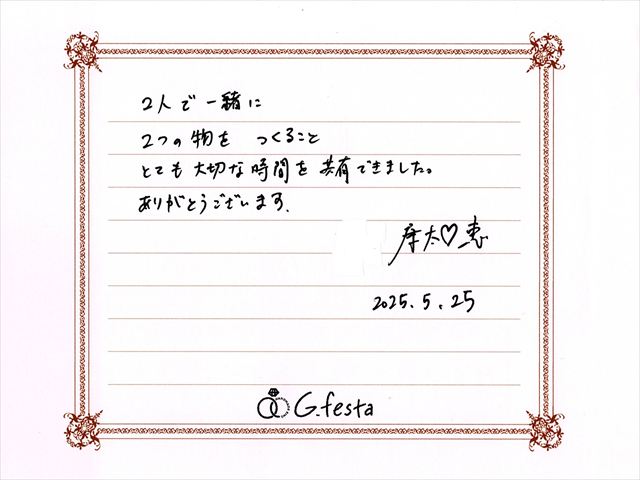 2人で一緒に
2つの物を つくること
とても大切な時間を共有できました。
ありがとうございます。
太♡恵
2025.5.25
G.festa